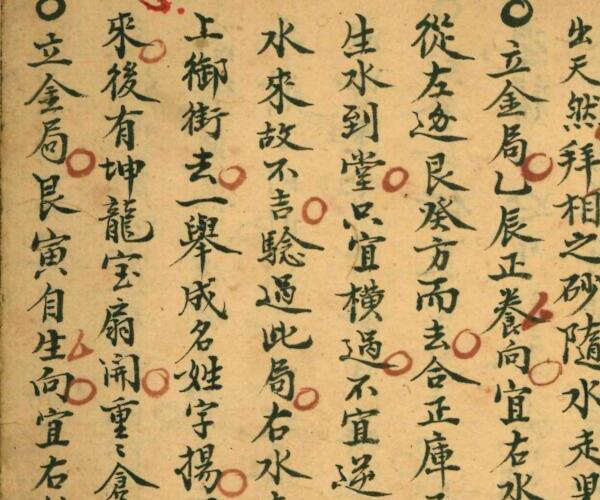 出天然拜相之砂隨水走
立金局乙辰正養向宜右水
從左邊艮癸方而去合正庫
生水到堂只宜橫過不宜逆
水來故不吉驗過此局右水
上御街去一舉成名姓字揚
來後有坤龍宝扇開重〻倉
立金局艮寅自生向宜右